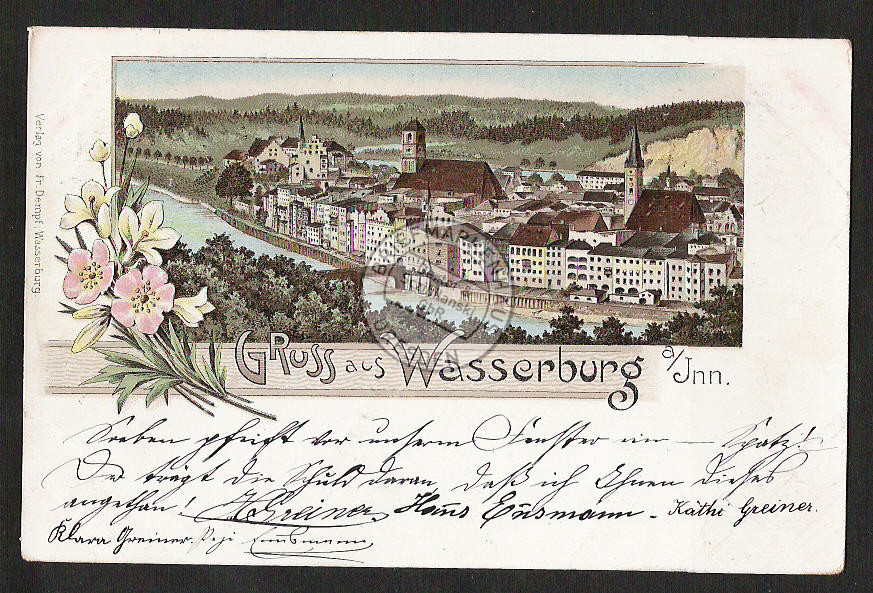 Verlag von Fr. Dempf, Wasserburg
Gruss aus Wasserburg a/Inn.
Soeben pfeift vor unserm Fenster ein — Spatz!
Der trägt die Schuld daran, daß ich Ihnen dieses
angethan! Greiner, Hans Ensmann - Käthi Greiner.
Klara Greiner. Pepi Ensmann